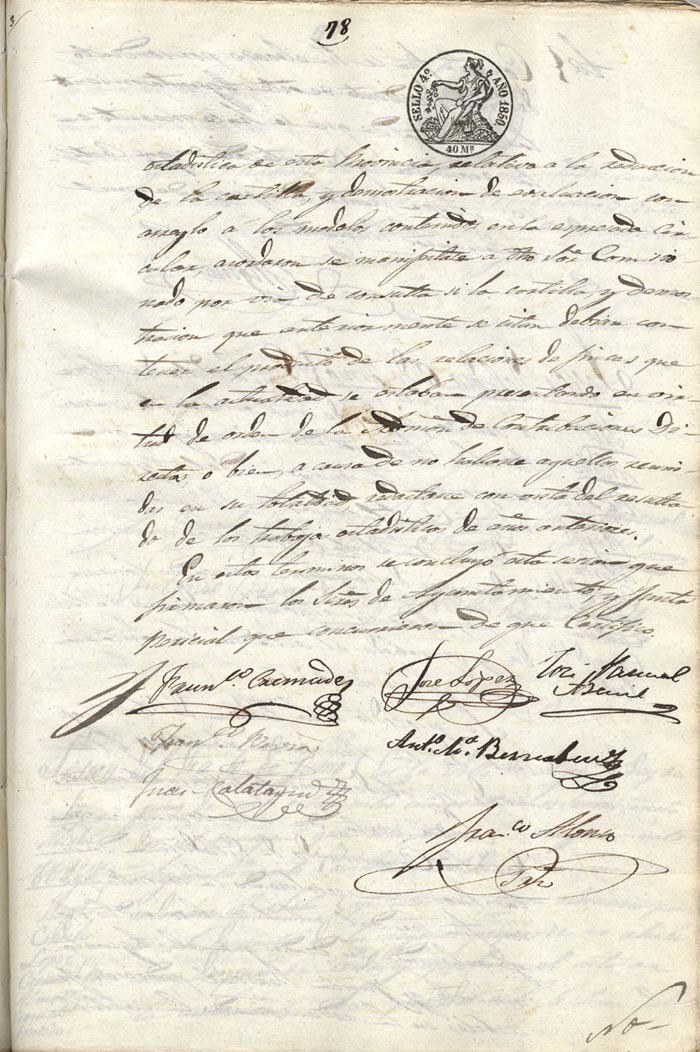 78
SELLO 4º AÑO 1850.
40 Ms
estadistica de esta Provincia, relativo a la redaccion
de la cartilla, y demostracion de evaluacion con
arreglo a los modelos contenidos en la espresada Cir-
cular, acordaron se manifieste a dho Sor. Comisio-
nado por via de consulta si la cartilla y demos-
tracion que anteriormente se citan debian con-
tener el producto de las relaciones de fincas que
en la actualidad se estaban presentando en vir-
tud de orden de la Admon de Contribuciones Di-
rectas o bien, a causa de no hallarse aquellas reuni-
das en su totalidad, redactarse con vista del resulta-
do de los trabajos estadisticos de años anteriores.
En estos terminos se concluyó esta sesion que
firmaron los Sres de Ayuntamiento y Junta
Pericial que concurrieron de que Certifico.
José Lopez
José Manuel
Juan Calatayud
Anto. Ma. Bernabeu
Franco Alonso
No-